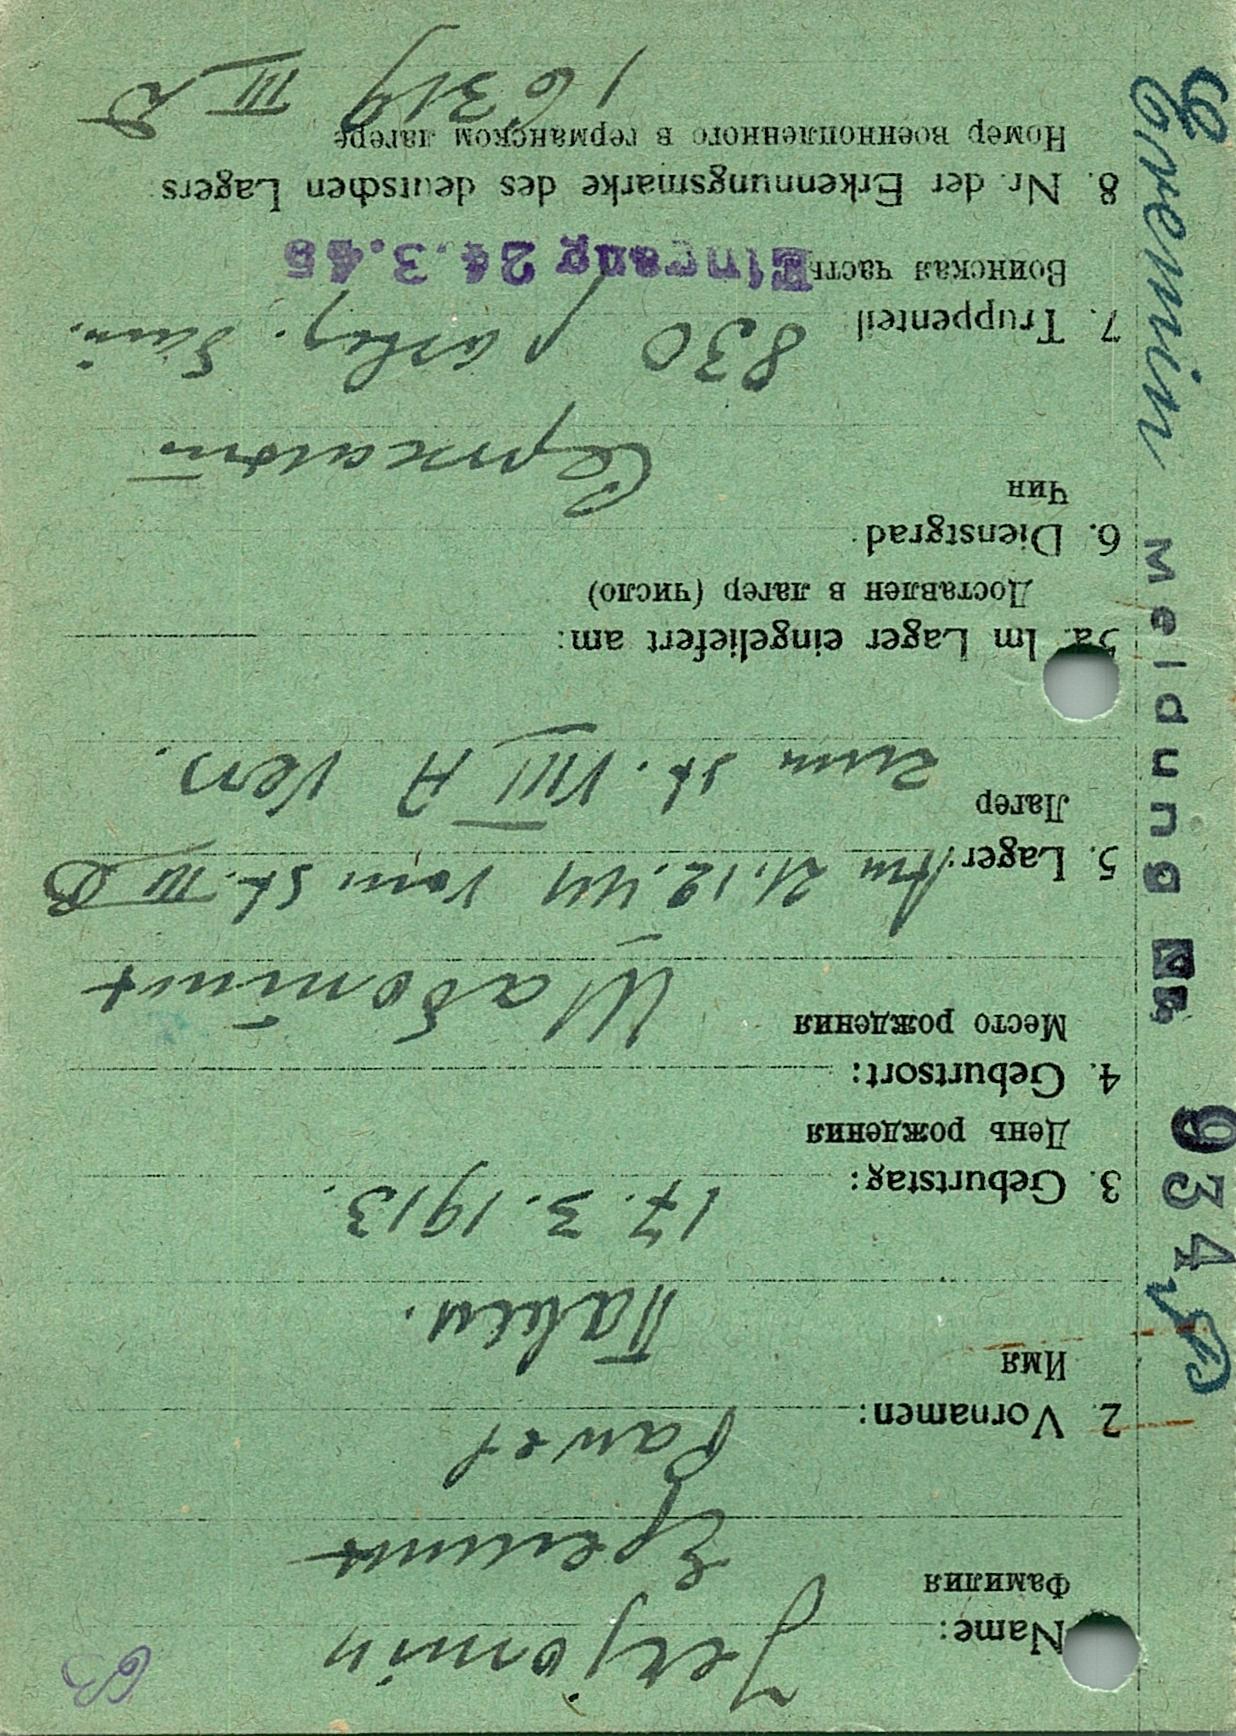 Name: Jerjomin
Фамилия Еремин
2. Vornamen: Pawel
Имя Павел.
3. Geburtstag: 17.3.1913.
День рождения
4. Geburtsort:
Место рождения
5. Lager: Am 21.12.44 vom St. III B
Лагер zum St. VIII A Vers.
5a. Im Lager eingeliefert am:
Доставлен в лагер (число)
6. Dienstgrad
Чин Сержант
7. Truppenteil 830
Воинская часть Eingang 24.3.45
8. Nr. der Erkennungsmarke des deutschen Lagers
Номер военнопленного в германском лагере
16319 III D
Eremin Meldung Nr. 934